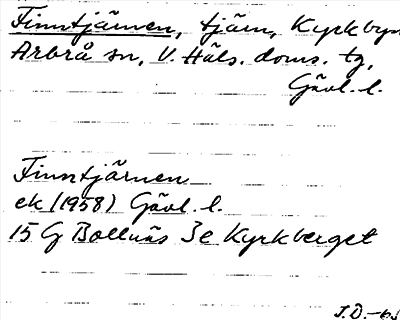 Finntjärnen, tjärn, Kyrkbyn
Arbrå sn, V. Häls. doms. tg,
Gävl. l.
Finntjärnen
ek (1958) Gävl. l.
15 G Bollnäs 3e Kyrkberget
J.D.-63